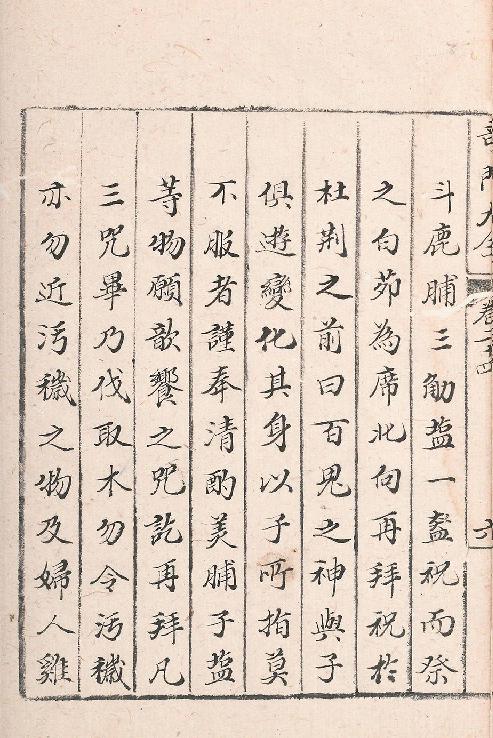 斗鹿脯三觔盐一盏祝而祭
之白茆為席北向再拜祝於
杜荆之前曰百鬼之神與子
俱遊變化其身以子所指莫
不服者謹奉清酌美脯子盐
等物願歆饗之咒訖再拜凡
三咒畢乃伐取木勿令污穢
亦勿近污穢之物及婦人雞